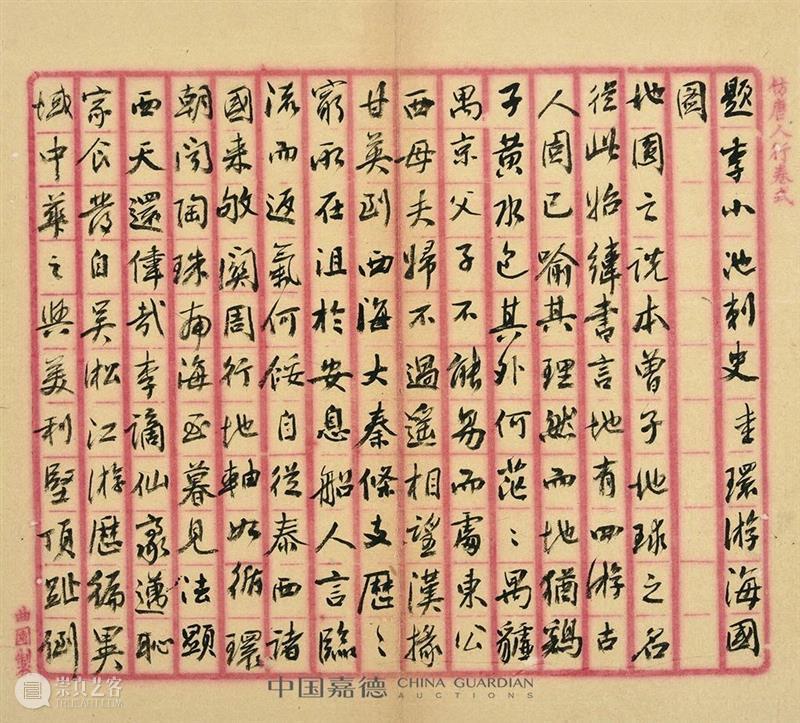 仿唐人行卷式
題李小池刺史圭環游海國
圖
地圓之説本曾子地球之名
從此始緯書言地有四游古
人固已喻其理然而地猶鷄
子黃水包其外何茫〻禺
禺京父子不能易而處東公
西母夫婦不過遙相望漢掾
甘英到西海大秦條支歷〻
窮所在沮於安息船人言臨
流而返氣何餒自從泰西諸
國來敂關周行地軸如循環
朝聞陶珠南海至暮見法顯
西天還偉哉李謫仙豪邁恥
家食發自吴淞江游歷徧異
域中華之與美利堅頂趾倒
曲園製
崇真艺客
中国嘉德 CHINA GUARDIAN
AUCTIONS